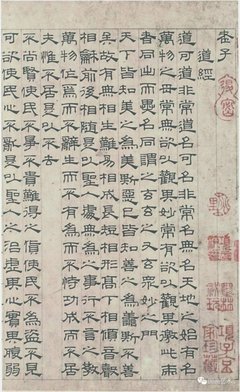 老子
道經
道可道非常道名可名非常名無名天地之始有名
萬物之母常無欲以觀其妙常有欲以觀其徼此兩
者同出而異名同謂之玄玄之又玄眾妙之門
天下皆知美之為美斯惡已皆知善之為善斯不善
矣故有無相生難易相成長短相形高下相傾音聲
相和前後相隨是以聖人處無為之事行不言之教
萬物作焉而不辭生而不有為而不恃功成不居
夫惟不居是以不去
不尚賢使民不爭不貴難得之貨使民不為盜不見
可欲使民心不亂是以聖人之治虛其心實其腹弱
項子京
家珍藏